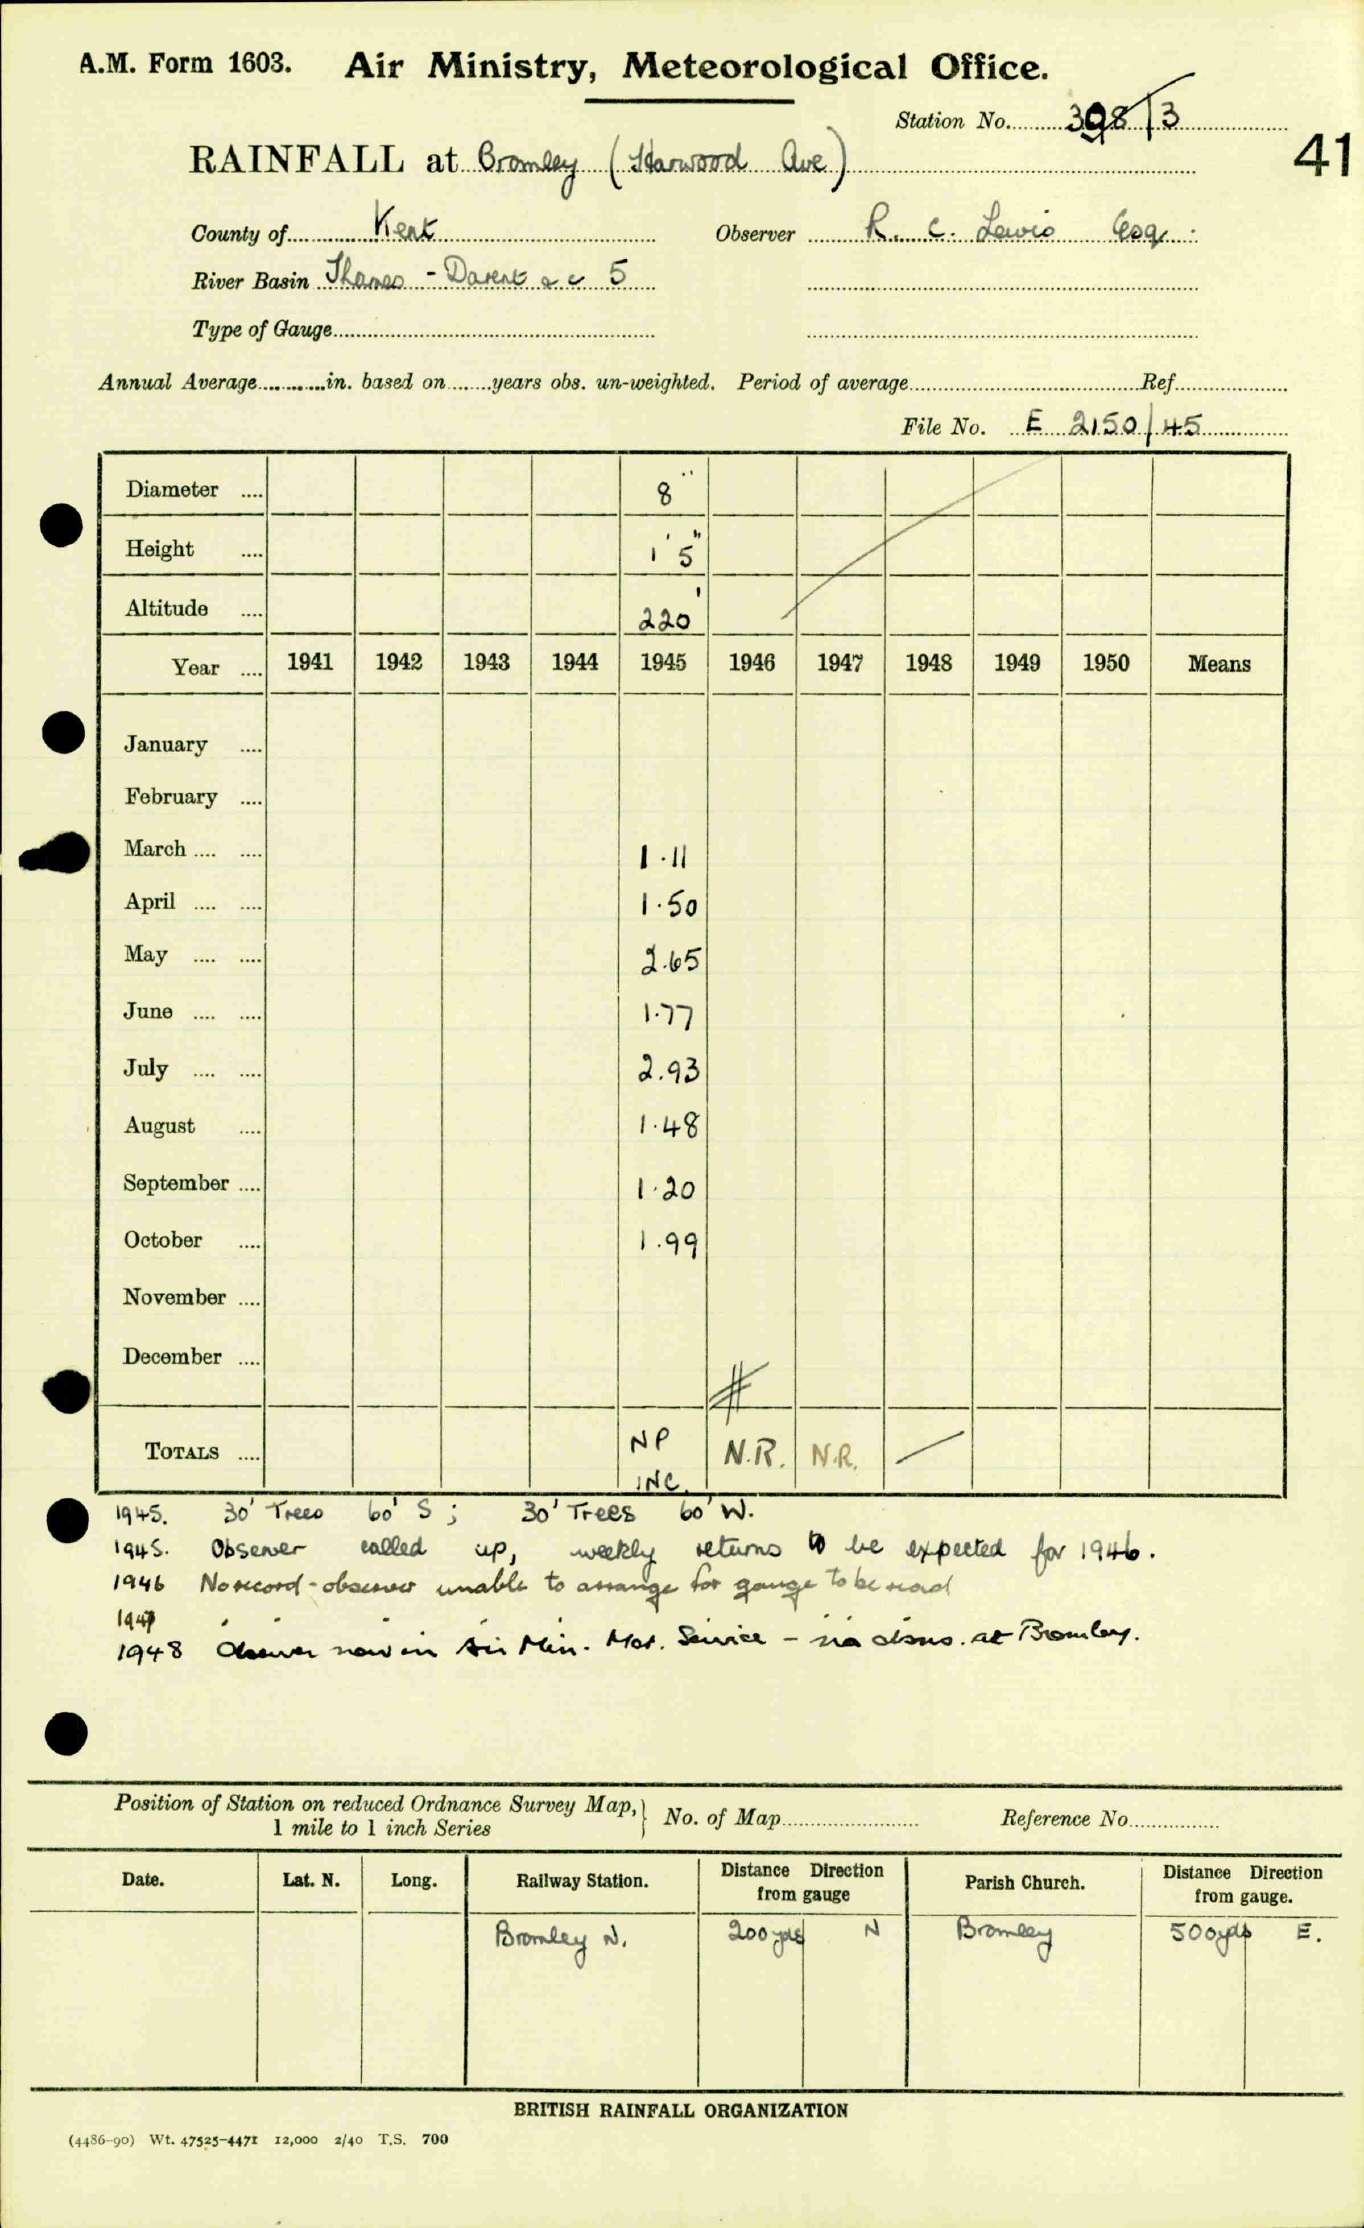 A.M. Form 1603. Air Ministry, Meteorological Office.
Station No. 398/3
41
RAINFALL at Bromley (Harwood Ave)
County of Kent Observer R. C. Lewis Esq.
River Basin Thames - Darent &c 5
Type of Gauge
Annual Average in. based on years obs. un-weighted. Period of average Ref.
File No. E 2150/45
Diameter .... 8"
Height .... 1' 5"
Altitude .... 220'
Year .... 1941 1942 1943 1944 1945 1946 1947 1948 1949 1950 Means
January ....
February ....
March .... .... 1.11
April .... .... 1.50
May .... .... 2.65
June .... .... 1.77
July .... .... 2.93
August .... 1.48
September .... 1.20
October .... 1.99
November ....
December ....
#
TOTALS .... NP N.R. N.R. —
INC.
1945. 30' Trees 60' S; 30' Trees 60' W.
1945. Observer called up, weekly returns to be expected for 1946.
1946 No record - observer unable to arrange for gauge to be read
1947 " "
1948 Observer now in Air Min. Met. Service - no obsns. at Bromley.
Position of Station on reduced Ordnance Survey Map, } No. of Map Reference No.
1 mile to 1 inch Series
Date. Lat. N. Long. Railway Station. Distance Direction from gauge Parish Church. Distance Direction from gauge.
Bromley N. 200 yds N Bromley 500 yds E.
BRITISH RAINFALL ORGANIZATION
(4486-90) Wt. 47525-4471 12,000 2/40 T.S. 700